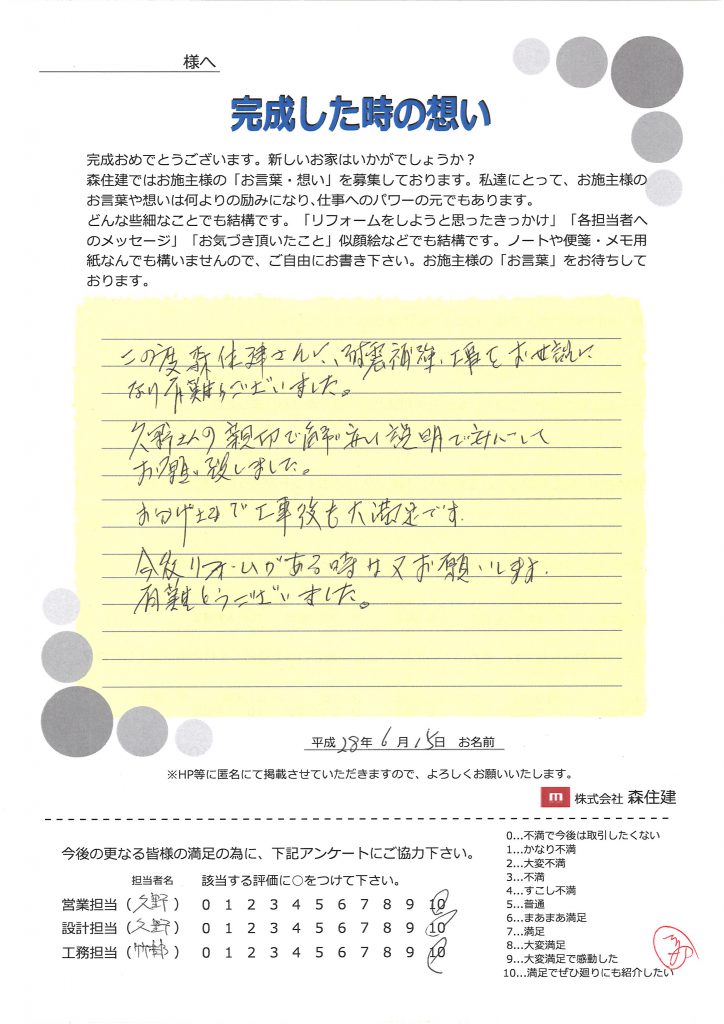 様へ
完成した時の想い
完成おめでとうございます。新しいお家はいかがでしょうか?
森住建ではお施主様の「お言葉・想い」を募集しております。私達にとって、お施主様の
お言葉や想いは何よりの励みになり、仕事へのパワーの元でもあります。
どんな些細なことでも結構です。「リフォームをしようと思ったきっかけ」「各担当者へ
のメッセージ」「お気づき頂いたこと」似顔絵などでも結構です。ノートや便箋・メモ用
紙なんでも構いませんので、ご自由にお書き下さい。お施主様の「お言葉」をお待ちして
おります。
この度森住建さんに、耐震補強工事をお世話に
なり有難うございました。
久野さんの親切で 説明で
お願い致しました。
おかげさまで工事後も大満足です。
今後リフォームがある時は又お願いします。
有難とうございました。
平成28年6月15日 お名前
※HP等に匿名にて掲載させていただきますので、よろしくお願いいたします。
m 株式会社 森住建
今後の更なる皆様の満足の為に、下記アンケートにご協力下さい。
担当者名 該当する評価に○をつけて下さい。
営業担当(久野) 0 1 2 3 4 5 6 7 8 9 10
設計担当(久野) 0 1 2 3 4 5 6 7 8 9 10
工務担当( ) 0 1 2 3 4 5 6 7 8 9 10
0…不満で今後は取引したくない
1…かなり不満
2…大変不満
3…不満
4…すこし不満
5…普通
6…まあまあ満足
7…満足
8…大変満足
9…大変満足で感動した
10…満足でぜひ廻りにも紹介したい